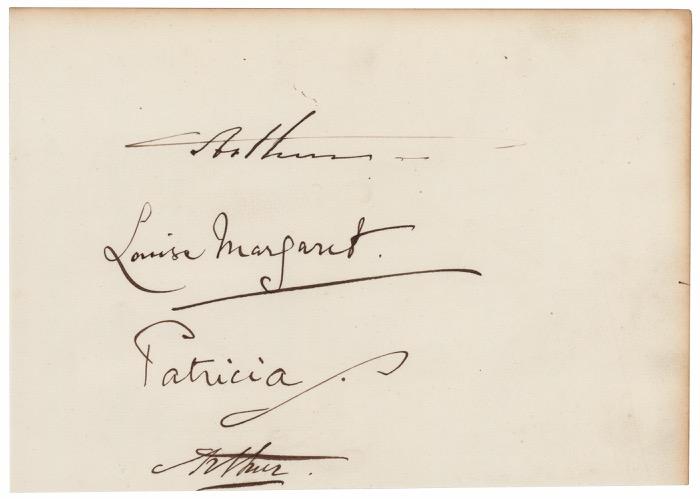 Arthur
Louise Margaret.
Patricia
Arthur.